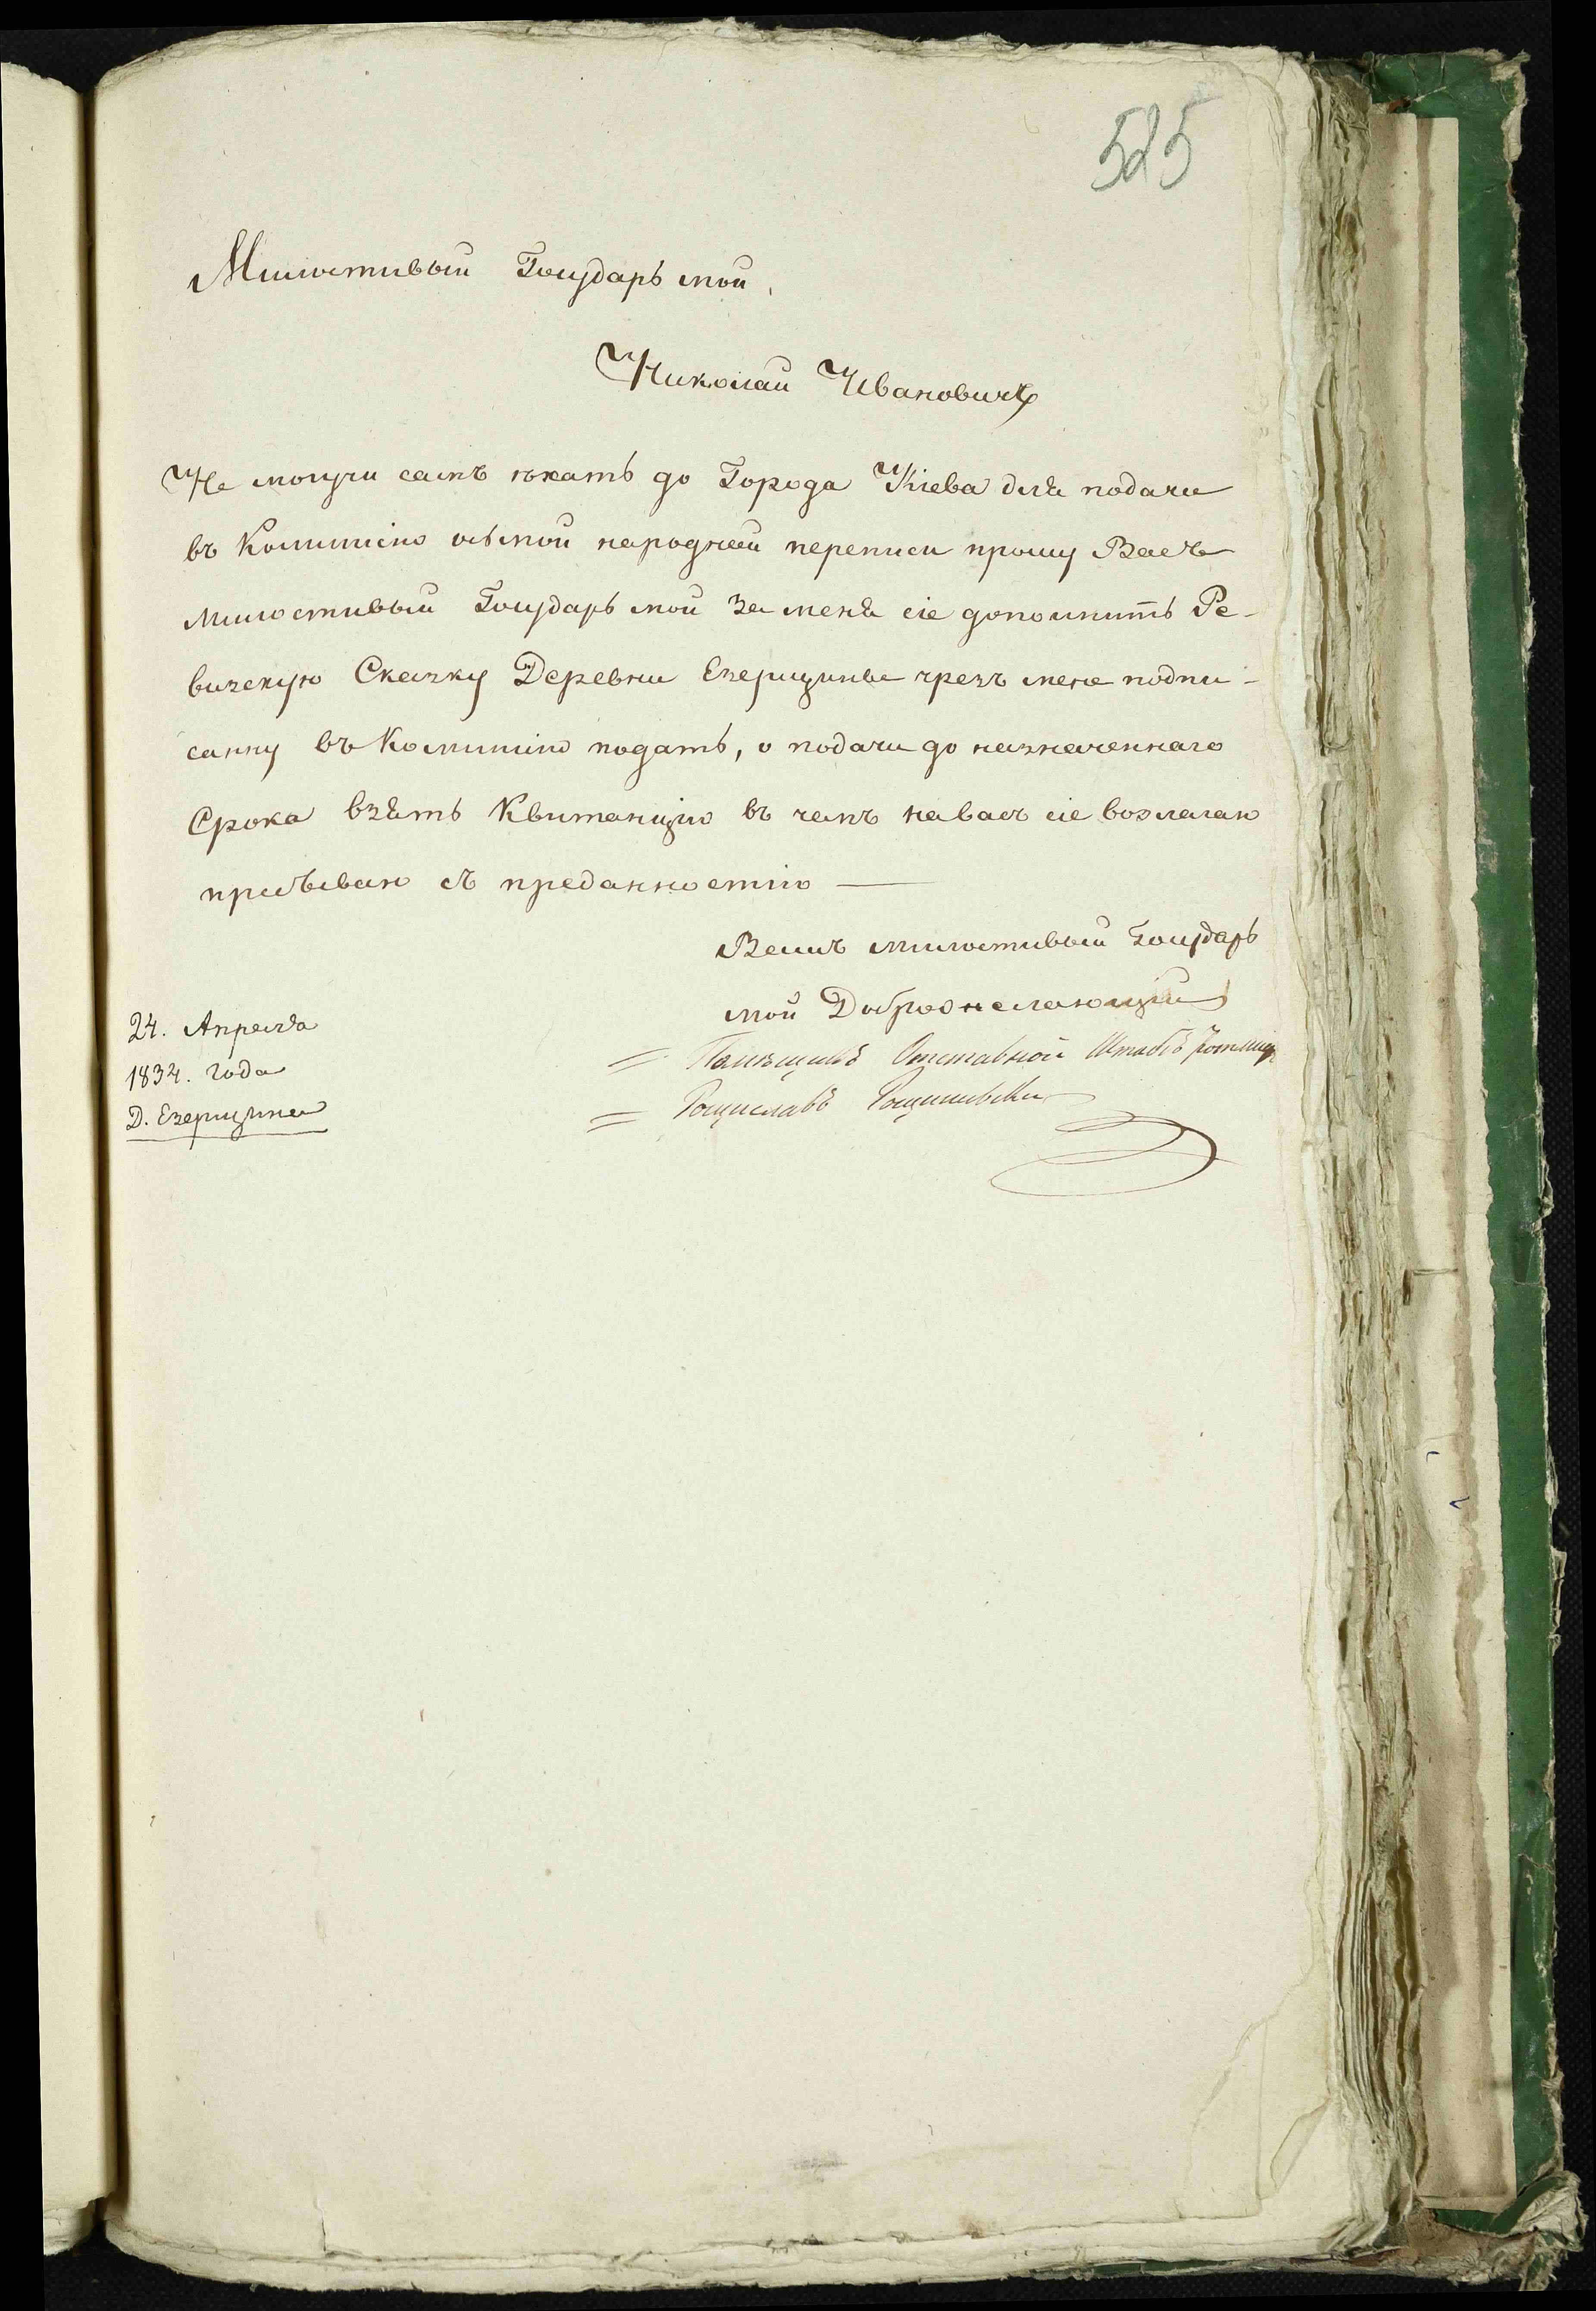 525
Милостивый Государь мой,
Николай Ивановичъ
Не могучи самъ ѣхать до Города Кіева для подачи
въ Коммисію осьмой народней переписи прошу Васъ
милостивый Государь мой за меня сіе дополнить Ре-
визскую Сказку Деревни Езерищины чрезъ мене подпи-
санну въ Коммисію подать, о подачи до назначеннаго
Срока взять Квитанцію въ чемъ на васъ сіе возлагаю
пребываю съ преданностію —
Вашъ милостивый Государь
мой Доброжелающій
= Помѣщикъ Отставной Штабъ Ротмистръ
= Рощиславъ
24. Апреля
1834. года
Д. Езерищина